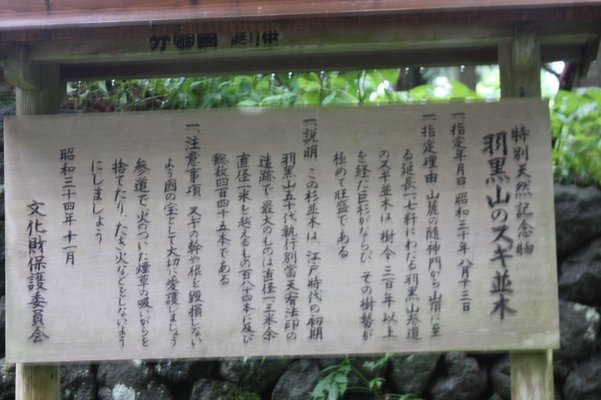 特別天然記念物
羽黒山のスギ並木
一、指定年月日 昭和三十年八月十三日
一、指定理由 山麓の随神門から山頂に至
る延長一七粁にわたる羽黒山参道
のスギ並木は 樹令三百年以上
を経た巨杉がならび、その樹勢が
極めて旺盛である
一、説明 この杉並木は、江戸時代の初期
羽黒山五十代執行別当天宥法印の
遺跡で、最大のものは直径一三米余
直径一米を越えるもの百八十四本に及び
総数四百四十五本である
一、注意事項 スギの幹や根を毀損しない
よう国の宝として大切に愛護しましょう
参道で火のついた煙草の吸いがらを
捨てたり、たき火などをしないよう
にしましょう
昭和三十四年十一月
文化財保護委員会